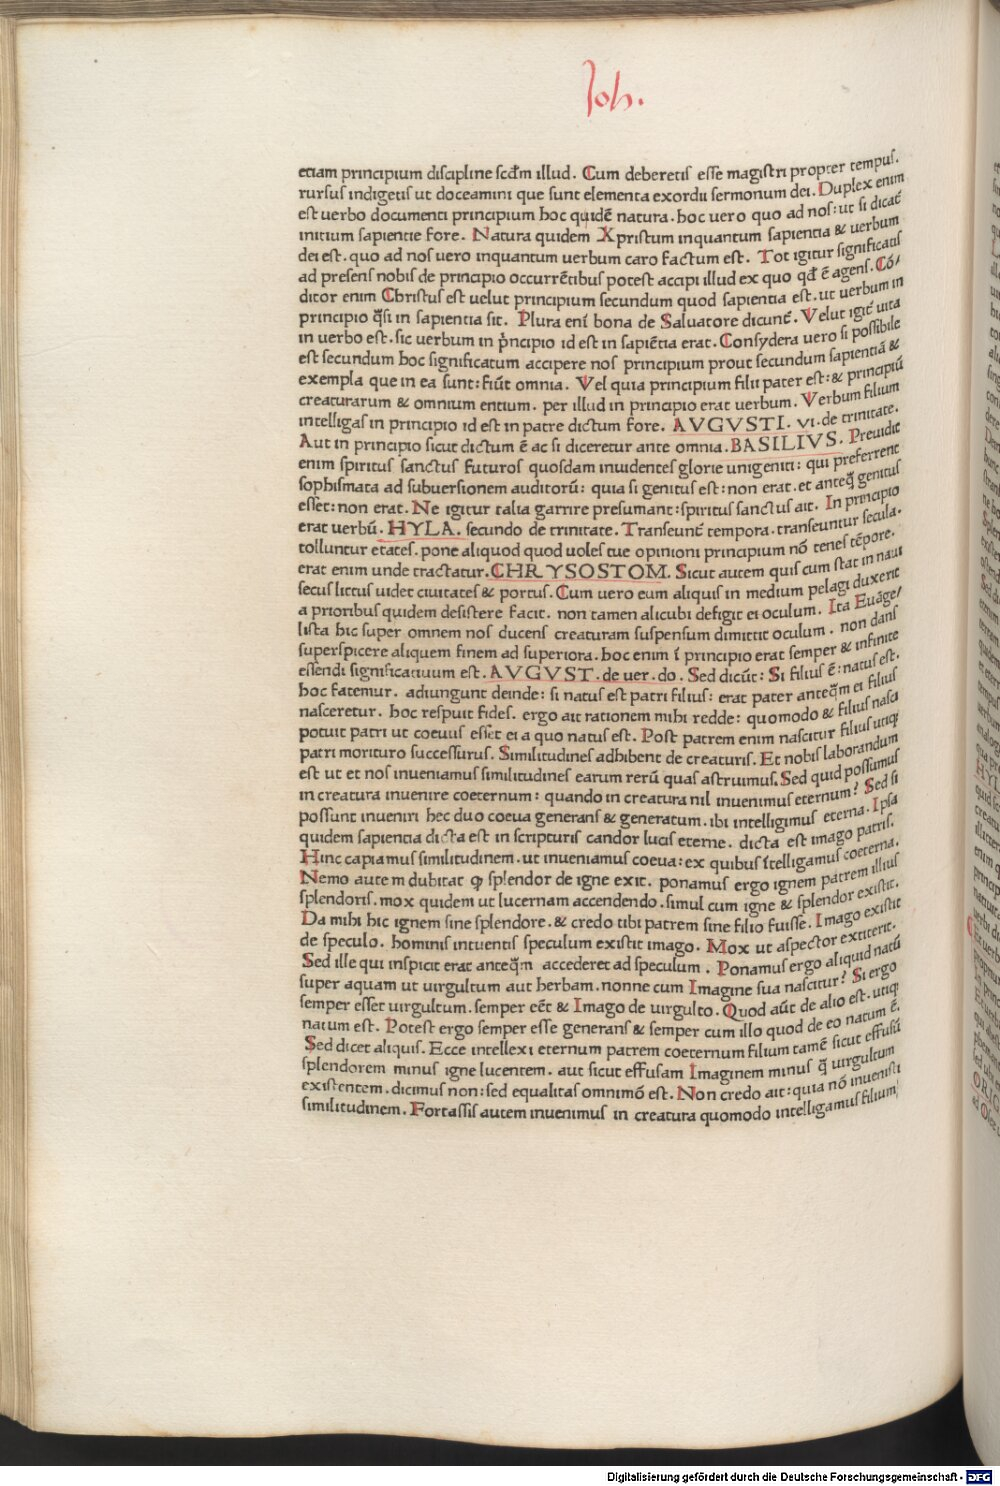 Joh.
etiam principium discipline scd̄m illud. Cum deberetis esse magistri propter tempus.
rursus indigetis ut doceamini que sunt elementa exordii sermonum dei. Duplex enim
est uerbo documenti principium hoc quidē natura. hoc uero quo ad nos: ut si dicat̄
initium sapientie fore. Natura quidem Xpristum inquantum sapientia & uerbum
dei est. quo ad nos uero inquantum uerbum caro factum est. Tot igitur significatis
ad presens nobis de principio occurrētibus potest accipi illud ex quo qd̄ ē agens. Cō/
ditor enim Christus est uelut principium secundum quod sapientia est. ut uerbum in
principio q̄si in sapientia sit. Plura eni bona de Saluatore dicunt̄. Velut igit̄ uita
in uerbo est. sic uerbum in p̄ncipio id est in sapiētia erat. Consydera uero si possibile
est secundum hoc significatum accipere nos principium prout secundum sapientiā &
exempla que in ea sunt: fiūt omnia. Vel quia principium filii pater est: & principiū
creaturarum & omnium entium. per illud in principio erat uerbum. Verbum filium
intelligas in principio id est in patre dictum fore. AVGVSTI. vi. de trinitate.
Aut in principio sicut dictum ē ac si diceretur ante omnia. BASILIVS. Preuidit
enim spiritus sanctus futuros quosdam inuidentes glorie unigeniti: qui preferrent
sophismata ad subuersionem auditorū: quia si genitus est: non erat. et anteq̄ genitus
esset: non erat. Ne igitur talia garrire presumant: spiritus sanctus ait. In principio
erat uerbū. HYLA. secundo de trinitate. Transeunt̄ tempora. transeuntur secula.
tolluntur etates. pone aliquod quod uoles tue opinioni principium nō tenes tēpore.
erat enim unde tractatur. CHRYSOSTOM. Sicut autem quis cum stat in naui
secus littus uidet ciuitates & portus. Cum uero eum aliquis in medium pelagi duxerit
a prioribus quidem desistere facit. non tamen alicubi defigit ei oculum. Ita Euāge/
lista hic super omnem nos ducens creaturam suspensum dimittit oculum. non dans
superspicere aliquem finem ad superiora. hoc enim ī principio erat semper & infinite
essendi significatiuum est. AVGVST. de uer. do. Sed dicūt: Si filius ē: natus est.
hoc fatemur. adiungunt deinde: si natus est patri filius: erat pater anteq̄m ei filius
nasceretur. hoc respuit fides. ergo ait rationem mihi redde: quomodo & filius nasci
potuit patri ut coeuus esset ei a quo natus est. Post patrem enim nascitur filius utiq;
patri morituro successurus. Similitudines adhibent de creaturis. Et nobis laborandum
est ut et nos inueniamus similitudines earum rerū quas astruimus. Sed quid possumus
in creatura inuenire coeternum: quando in creatura nil inuenimus eternum? Sed si
possunt inueniri hec duo coeua generans & generatum. ibi intelligimus eterna. Ipsa
quidem sapientia dicta est in scripturis candor lucis eterne. dicta est imago patris.
Hinc capiamus similitudinem. ut inueniamus coeua: ex quibus ītelligamus coeterna.
Nemo autem dubitat ꝙ splendor de igne exit. ponamus ergo ignem patrem illius
splendoris. mox quidem ut lucernam accendendo. simul cum igne & splendor existit.
Da mihi hic ignem sine splendore. & credo tibi patrem sine filio fuisse. Imago existit
de speculo. hominis intuentis speculum existit imago. Mox ut aspector extiterit.
Sed ille qui inspicit erat anteq̄m accederet ad speculum. Ponamus ergo aliquid natū
super aquam ut uirgultum aut herbam. nonne cum Imagine sua nascitur? Si ergo
semper esset uirgultum. semper eēt & Imago de uirgulto. Quod aūt de alio est. utiq;
natum est. Potest ergo semper esse generans & semper cum illo quod de eo natum ē.
Sed dicet aliquis. Ecce intellexi eternum patrem coeternum filium tamē sicut effusū
splendorem minus igne lucentem. aut sicut effusam Imaginem minus q̄ uirgultum
existentem. dicimus non: sed equalitas omnimō est. Non credo ait: quia nō inuenisti
similitudinem. Fortassis autem inuenimus in creatura quomodo intelligamus filium
Digitalisierung gefördert durch die Deutsche Forschungsgemeinschaft - DFG